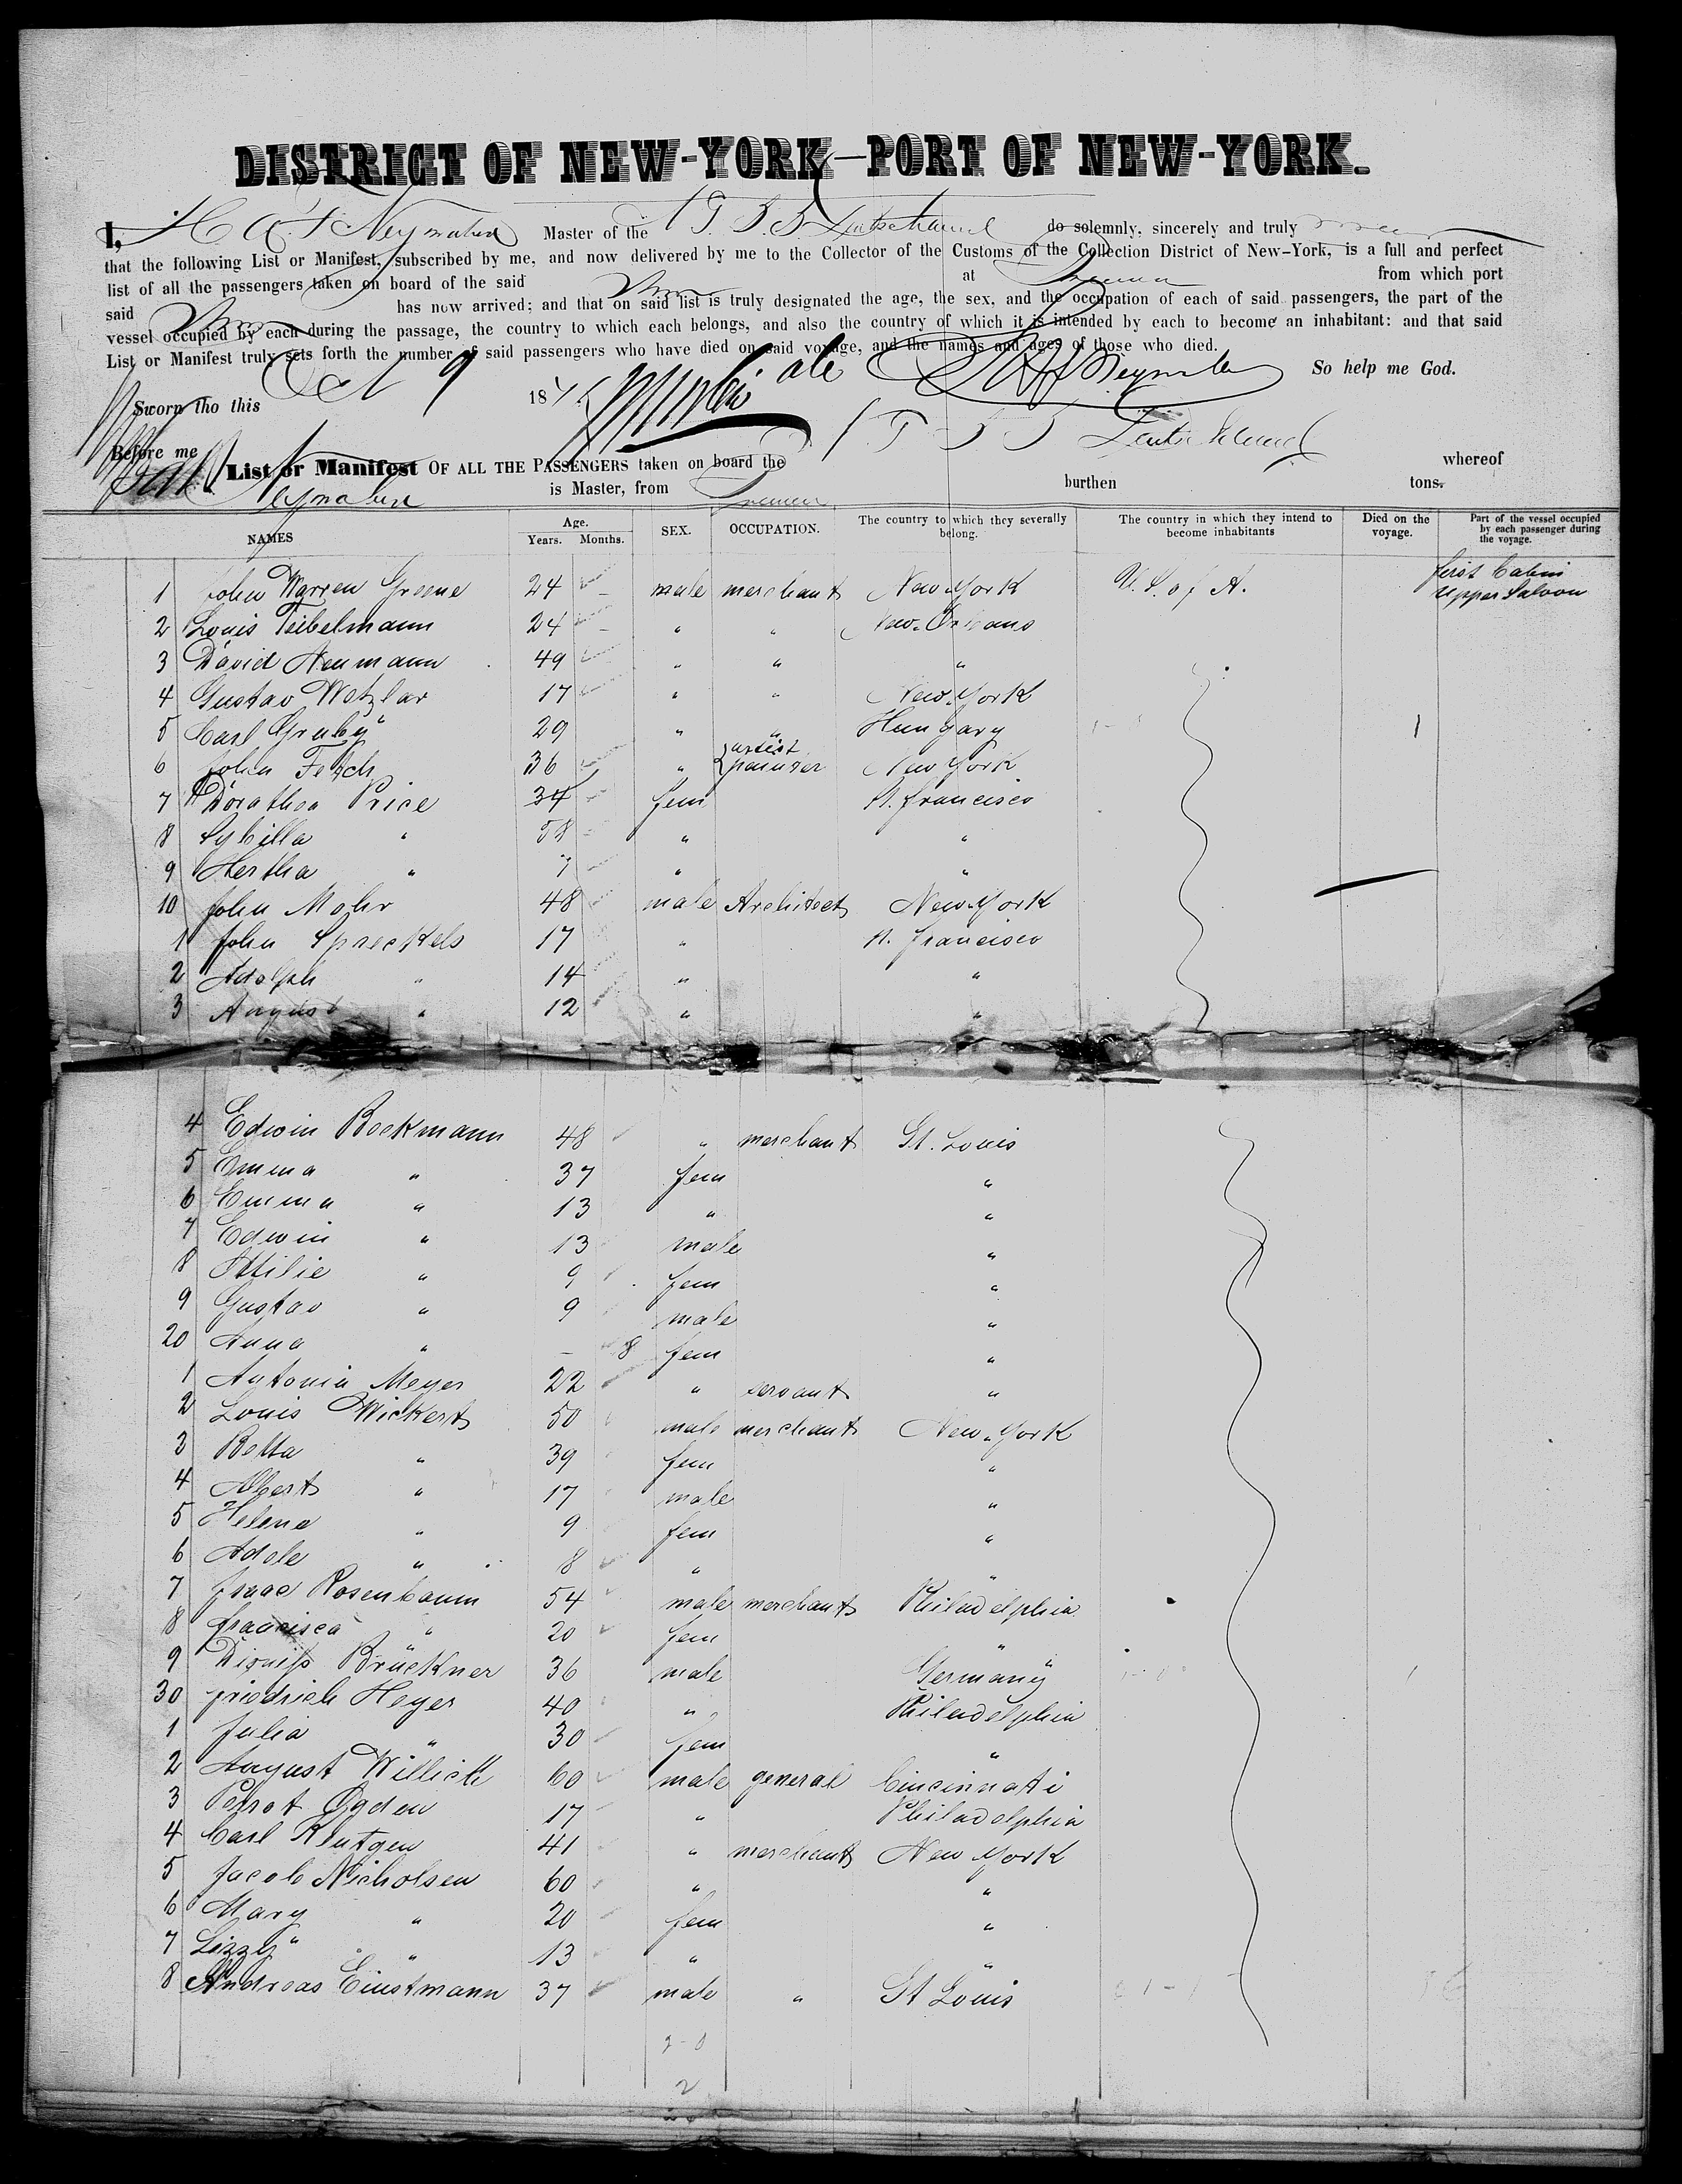 DISTRICT OF NEW-YORK—PORT OF NEW-YORK.
I, H A. F Neynaber Master of the do solemnly, sincerely and truly
that the following List or Manifest, subscribed by me, and now delivered by me to the Collector of the Customs of the Collection District of New-York, is a full and perfect
list of all the passengers taken on board of the said at Bremen from which port
said has now arrived; and that on said list is truly designated the age, the sex, and the occupation of each of said passengers, the part of the
vessel occupied by each during the passage, the country to which each belongs, and also the country of which it is intended by each to become an inhabitant: and that said
List or Manifest truly sets forth the number of said passengers who have died on said voyage, and the names and ages of those who died.
So help me God.
Sworn tho this Oct 9 187
Before me
List or Manifest OF ALL THE PASSENGERS taken on board the whereof
Neynaber is Master, from Bremen burthen tons.
NAMES Age. Years. Months. SEX. OCCUPATION. The country to which they severally belong. The country in which they intend to become inhabitants Died on the voyage. Part of the vessel occupied by each passenger during the voyage.
1 John Warren Greene 24 – male merchant New-York U. S. of A. first Cabin upper Saloon
2 Louis Teibelmann 24 – " " New-Orleans
3 David Neumann 49 " " "
4 Gustav Wetzlar 17 " " New-York
5 Carl Gruby 29 " " Hungary 1
6 John Fetzch 36 " artist painter New York
7 Dorathea Price 34 fem St. francisco
8 Sybilla " 58 " "
9 Hertha " 7 " "
10 John Mohr 48 male Architect New-York
1 John Spreckels 17 " St. francisco
2 Adolph " 14 " "
3 August " 12 " "
4 Edwin Beckmann 48 " merchant St. Louis
5 Emma " 37 fem "
6 Emma " 13 " "
7 Edwin " 13 male "
8 Ottilie " 9 fem "
9 Gustav " 9 male "
20 Anna " – 8 fem "
1 Antonia Meyer 22 " servant "
2 Louis Wickert 50 male merchant New-York
3 Betta " 39 fem "
4 Albert " 17 male "
5 Helene " 9 fem "
6 Adele " 8 " "
7 Isaac Rosenbaum 54 male merchant Philadelphia
8 francisca " 20 fem "
9 Brückner 36 male Germany 1
30 friedrich Heyer 40 " Philadelphia
1 Julia " 30 fem "
2 August Willich 60 male general Cincinnati
3 Perrot Ogden 17 " Philadelphia
4 Carl Klutgen 41 " merchant New York
5 Jacob Nicholsen 60 " "
6 Mary " 20 fem "
7 Lizzy " 13 " "
8 Andreas Einstmann 37 male " St Louis